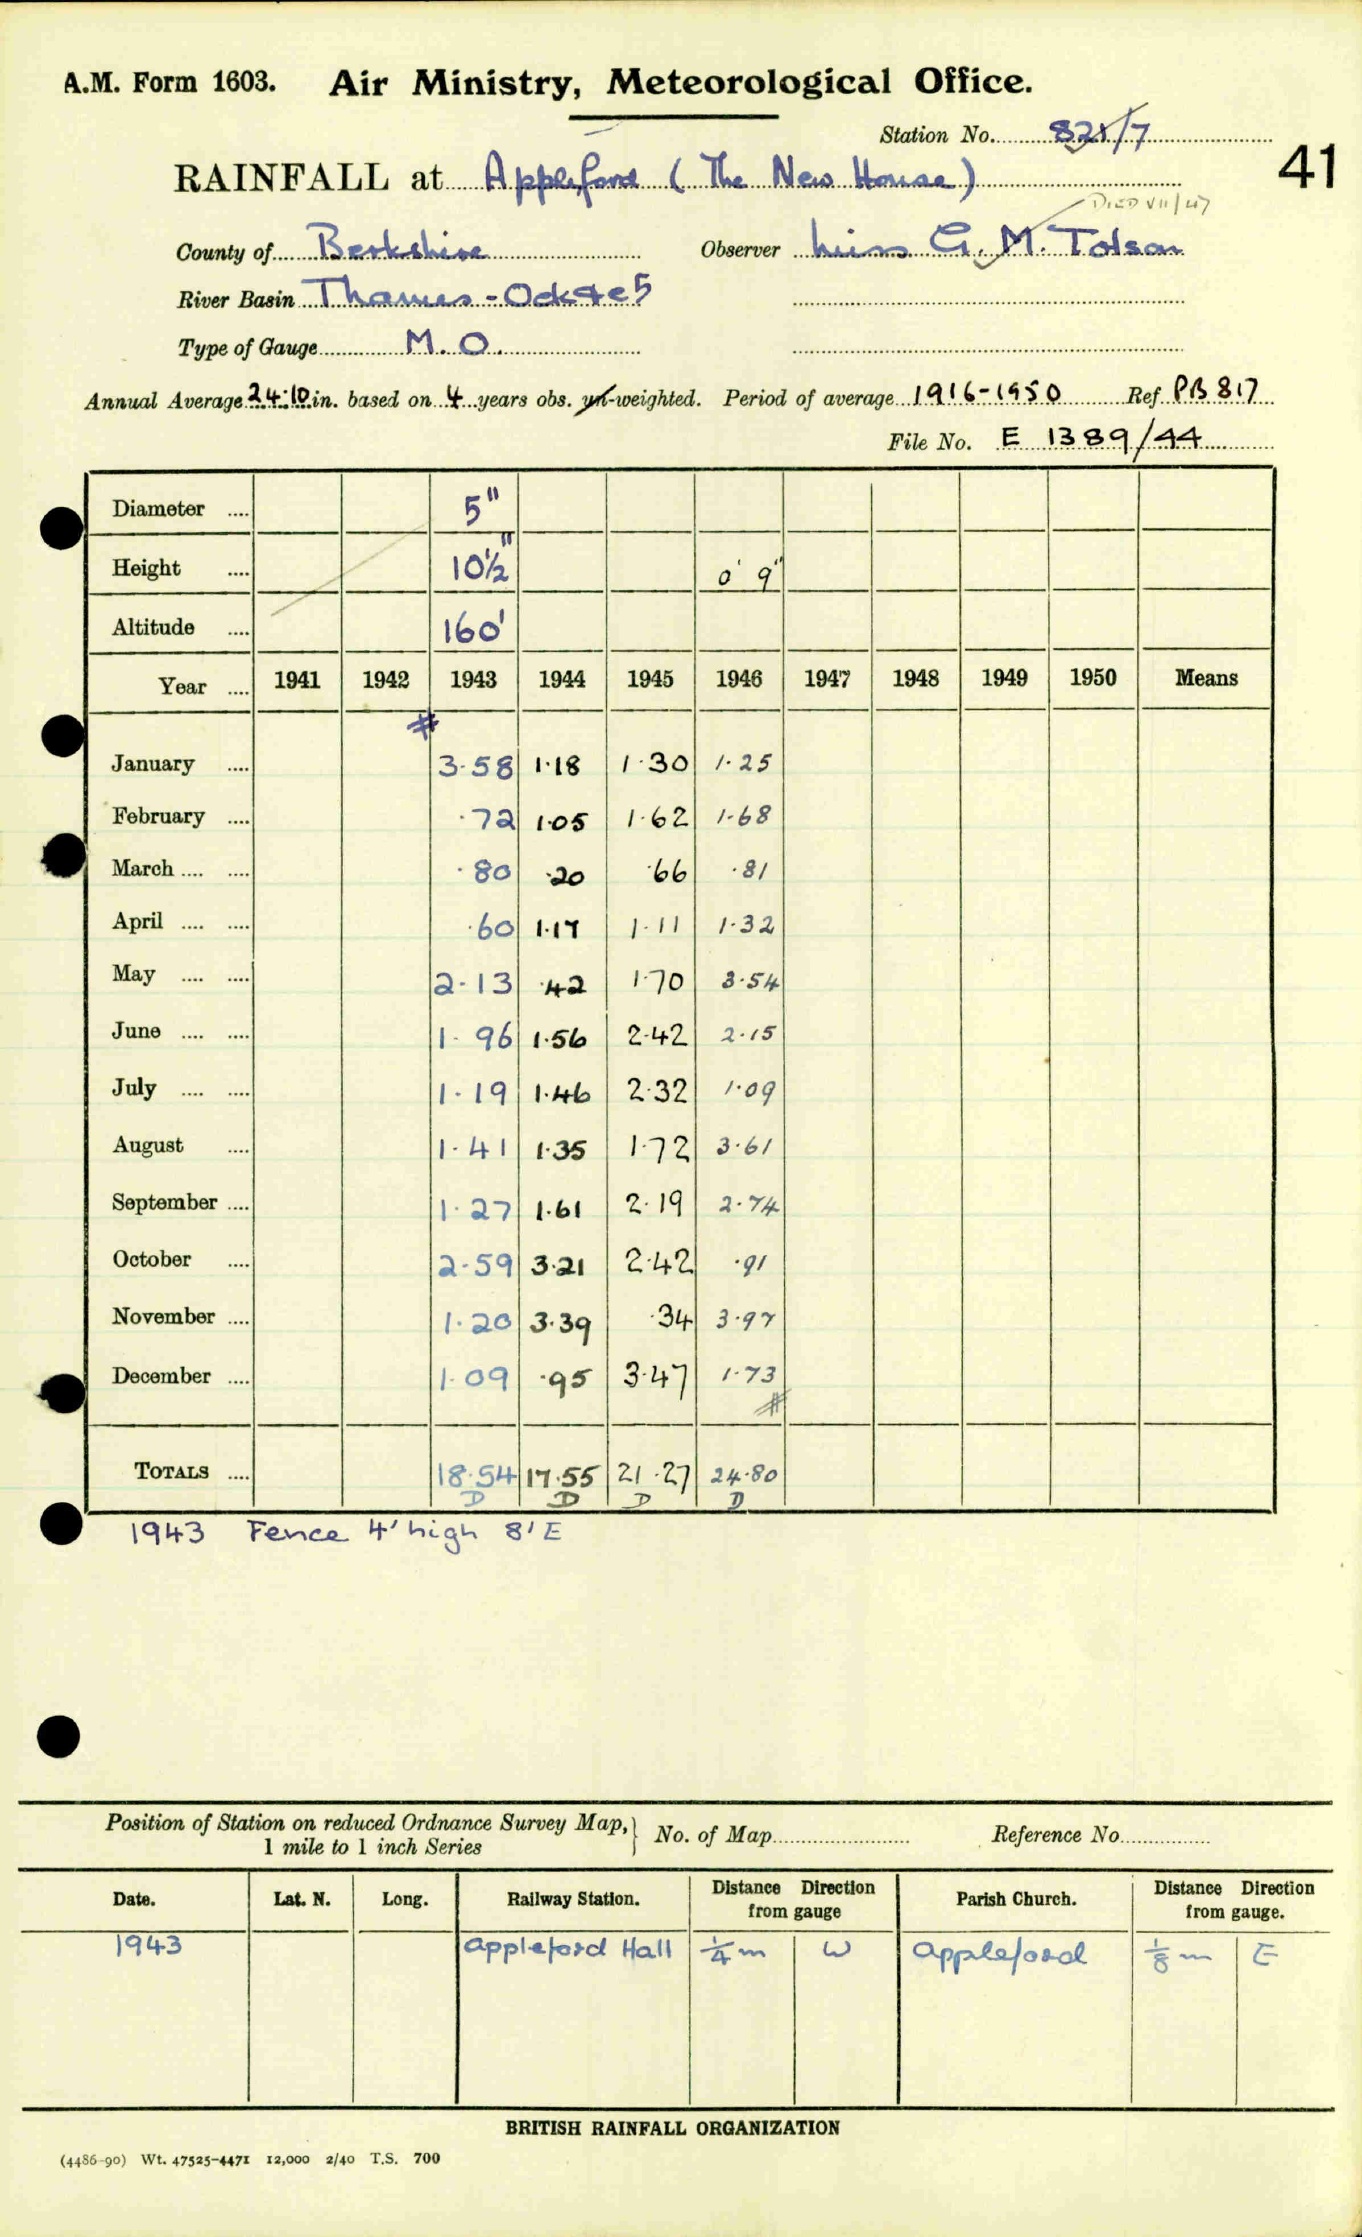 A.M. Form 1603. Air Ministry, Meteorological Office.
Station No. 821/7
41
RAINFALL at Appleford (The New House)
DIED VII/47
County of Berkshire Observer Miss G. M. Tolson
River Basin Thames-Ock4e5
Type of Gauge M.O.
Annual Average 24.10 in. based on 4 years obs. un-weighted. Period of average 1916-1950 Ref PB 817
File No. E 1389/44
Diameter .... 5"
Height .... 10½" 0' 9"
Altitude .... 160'
Year .... 1941 1942 1943 1944 1945 1946 1947 1948 1949 1950 Means
#
January .... 3.58 1.18 1.30 1.25
February .... .72 1.05 1.62 1.68
March .... .... .80 .20 .66 .81
April .... .... .60 1.17 1.11 1.32
May .... .... 2.13 .42 1.70 3.54
June .... .... 1.96 1.56 2.42 2.15
July .... .... 1.19 1.46 2.32 1.09
August .... 1.41 1.35 1.72 3.61
September .... 1.27 1.61 2.19 2.74
October .... 2.59 3.21 2.42 .91
November .... 1.20 3.39 .34 3.97
December .... 1.09 .95 3.47 1.73
#
TOTALS .... 18.54 17.55 21.27 24.80
D D D D
1943 Fence 4' high 8' E
Position of Station on reduced Ordnance Survey Map, } No. of Map Reference No
1 mile to 1 inch Series
Date. Lat. N. Long. Railway Station. Distance Direction from gauge Parish Church. Distance Direction from gauge.
1943 Appleford Hall ¼ m W Appleford ⅛ m E
BRITISH RAINFALL ORGANIZATION
(4486-90) Wt. 47525-4471 12,000 2/40 T.S. 700